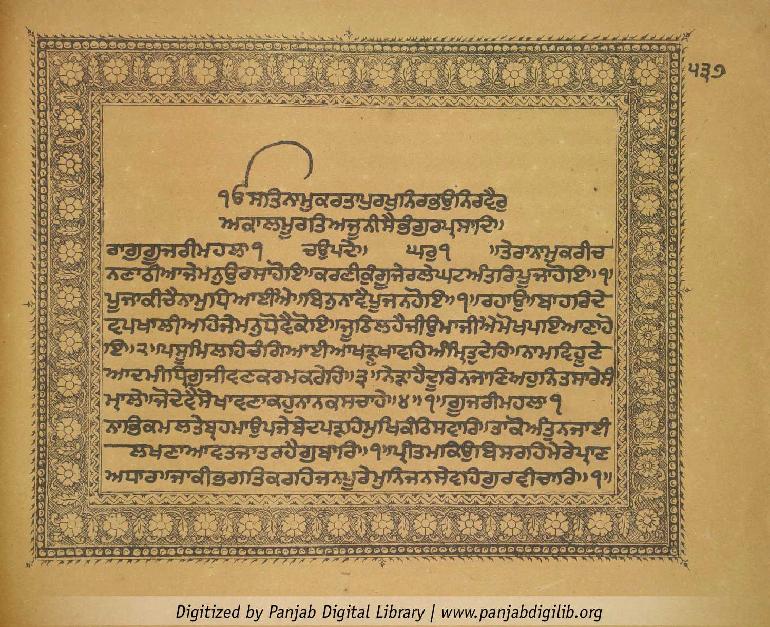 ੫੩੭
੧ਓ ਸਤਿਨਾਮੁਕਰਤਾਪੁਰਖੁਨਿਰਭਉਨਿਰਵੈਰੁ
ਅਕਾਲਮੂਰਤਿਅਜੂਨੀਸੈਭੰਗੁਰਪ੍ਰਸਾਦਿ॥
ਰਾਗੁਗੂਜਰੀਮਹਲਾ ੧ ਚਉਪਦੇ॥ ਘਰੁ ੧ ॥ਤੇਰਾਨਾਮੁਕਰੀਚ
ਨਣਾਠੀਆਜੇਮਨੁਉਰਸਾਹੋਇ॥ਕਰਣੀਕੁੰਗੂਜੇਰਲੈਘਟਅੰਤਰਿਪੂਜਾਹੋਇ॥੧॥
ਪੂਜਾਕੀਚੈਨਾਮੁਧਿਆਈਐ॥ਬਿਨੁਨਾਵੈਪੂਜਨਹੋਇ॥੧॥ਰਹਾਉ॥ਬਾਹਰਿਦੇ
ਵਪਖਾਲੀਅਹਿਜੇਮਨੁਧੋਵੈਕੋਇ॥ਜੂਠਿਲਹੈਜੀਉਮਾਜੀਐਮੋਖਪਇਆਣਾਹੋ
ਇ॥੨॥ਪਸੂਮਿਲਹਿਚੰਗਿਆਈਆਖੜੁਖਾਵਹਿਅੰਮ੍ਰਿਤੁਦੇਹਿ॥ਨਾਮਵਿਹੂਣੇ
ਆਦਮੀਧ੍ਰਿਗੁਜੀਵਣਕਰਮਕਰੇਹਿ॥੩॥ਨੇੜਾਹੈਦੂਰਿਨਜਾਣਿਅਹੁਨਿਤਸਾਰੇਸੰ
ਮ੍ਹਾਲੇ॥ਜੋਦੇਵੈਸੋਖਾਵਣਾਕਹੁਨਾਨਕਸਾਚਾਹੇ॥੪॥੧॥ਗੂਜਰੀਮਹਲਾ ੧
ਨਾਭਿਕਮਲਤੇਬ੍ਰਹਮਾਉਪਜੇਬੇਦਪੜਹਿਮੁਖਿਕੰਠਿਸਵਾਰਿ॥ਤਾਕੋਅੰਤੁਨਜਾਈ
ਲਖਣਾਆਵਤਜਾਤਰਹੈਗੁਬਾਰਿ॥੧॥ਪ੍ਰੀਤਮਕਿਉਬਿਸਰਹਿਮੇਰੇਪ੍ਰਾਣ
ਅਧਾਰ॥ਜਾਕੀਭਗਤਿਕਰਹਿਜਨਪੂਰੇਮੁਨਿਜਨਸੇਵਹਿਗੁਰਵੀਚਾਰਿ॥੧॥
Digitized by Panjab Digital Library | www.panjabdigilib.org